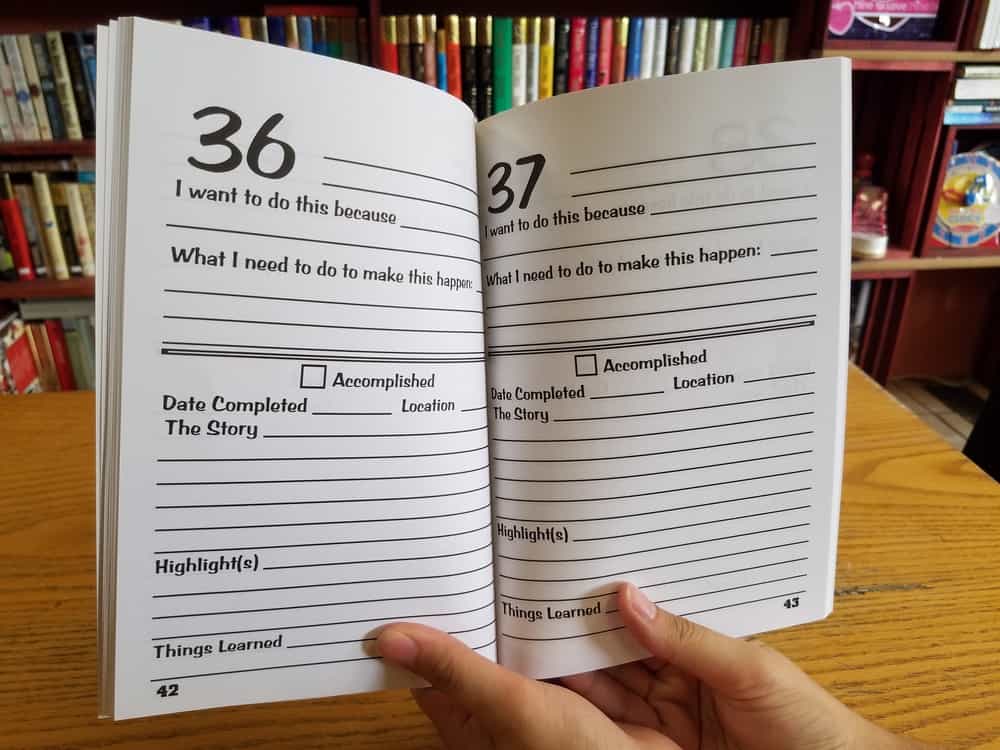 36
I want to do this because
What I need to do to make this happen:
Accomplished
Date Completed Location
The Story
Highlight(s)
Things Learned
42
37
I want to do this because
What I need to do to make this happen:
Accomplished
Date Completed Location
The Story
Highlight(s)
Things Learned
43